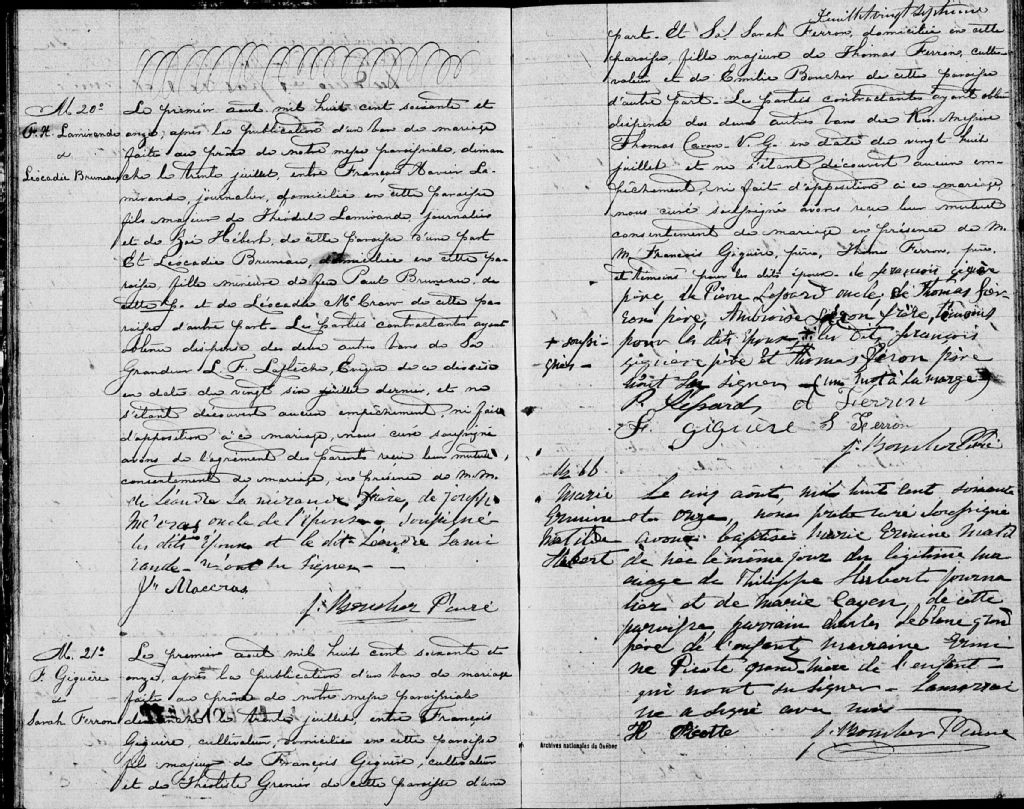 M. 20e
F. X. Lamirande
&
Léocadie Bruneau
Le premier aout mil huit cent soixante et
onze, après la publication d'un ban de mariage
faite au prône de notre messe paroissiale, diman
che le trente juillet, entre François Xavier La-
mirande, journalier, domicilié en cette paroisse
fils majeur de Théodule Lamirande, journalier
et de Zoé Hébert, de cette paroisse d'une part
Et Léocadie Bruneau, domiciliée en cette pa-
roisse, fille mineure de feu Paul Bruneau, de
cette p. et de Léocadie McCraw de cette pa-
roisse d'autre part. Le parties contractantes ayant
obtenu dispense des deux autres bans de Sa
Grandeur L. F. Laflèche, Evêque de ce diocèse
en date du vingt six juillet dernier, et ne
s'étant découvert aucun empêchement, ni fait
d'opposition à ce mariage, nous curé soussigné
avons de l'agrément des parents reçu leur mutuel
consentement de mariage, en présence de M.M.
de Léandre La mirande frère, de Joseph
McCras oncle de l'épouse soussigné
les dits époux et le dit Léandre Lami
rande n'ont su signer
Jh Maccras
J. Boucher Ptre curé
M. 21e
F. Giguère
&
Sarah Ferron
Le premier aout mil huit cent soixante et
onze, après la publication d'un ban de mariage
faite au prône de notre messe paroissiale
dimanche le trente juillet, entre François
Giguère, cultivateur, domicilié en cette paroisse
fils majeur de François Giguère, cultivateur
et de Théotiste Grenier de cette paroisse d'une
Feuillet vingt septième
part. Et Sarah Ferron, domiciliée en cette
paroisse, fille majeure de Thomas Ferron, culti-
vateur et de Emilie Boucher de cette paroisse
d'autre part. Le parties contractantes ayant obtenu
dispense des deux autres bans du Rév. Messire
Thomas Caron V. G. en date du vingt huit
juillet et ne s'étant découvert aucun em-
pêchement, ni fait d'opposition à ce mariage,
nous curé soussigné avons reçu leur mutuel
consentement de mariage en présence de M.
M. François Giguère, père, Thomas Ferron, père,
et témoins pour les dits époux de françois Giguère
père, de Pierre Lesard oncle, de Thomas Fer-
ron père, Ambroise feron frère, témoins
pour les dits époux + les dits françois
+ soussi-
gnés -
giguere père Et Thomas feron père
n'ont su signer (un mot à la marge)
P. Lesard A Fierron
F. Giguère S Ferron
J. Boucher Ptre curé
B 66
Marie
Ermine
Matilde
Hebert
Le cinq août, mil huit cent soixante
et onze, nous prêtre curé soussigné
avons baptisé Marie Ermine Matil
de née le même jour du légitime ma
riage de Philippe Hubert journa
lier et de Marie Cayen, de cette
paroisse parrain Charles Leblanc grand
père de l'enfant, marraine Ermi
ne Picote grand-mère de l'enfant
qui n'ont su signer - La marrai
ne a signé avec nous
H Picotte
J. Boucher Ptre curé
Archives nationales du Québec